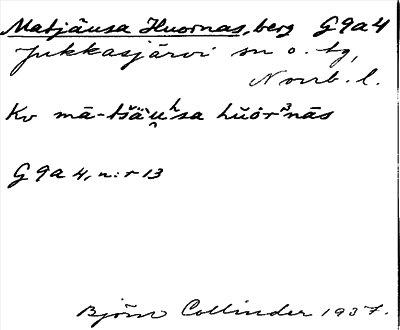 Matjäusa Huornas, berg G9a4
Jukkasjärvi sn o. tg,
Norrb. l.
Kv mā-tšä̀u̯ʰsa hŭör³nās
G9a4, n:r 13
Björn Collinder 1937.